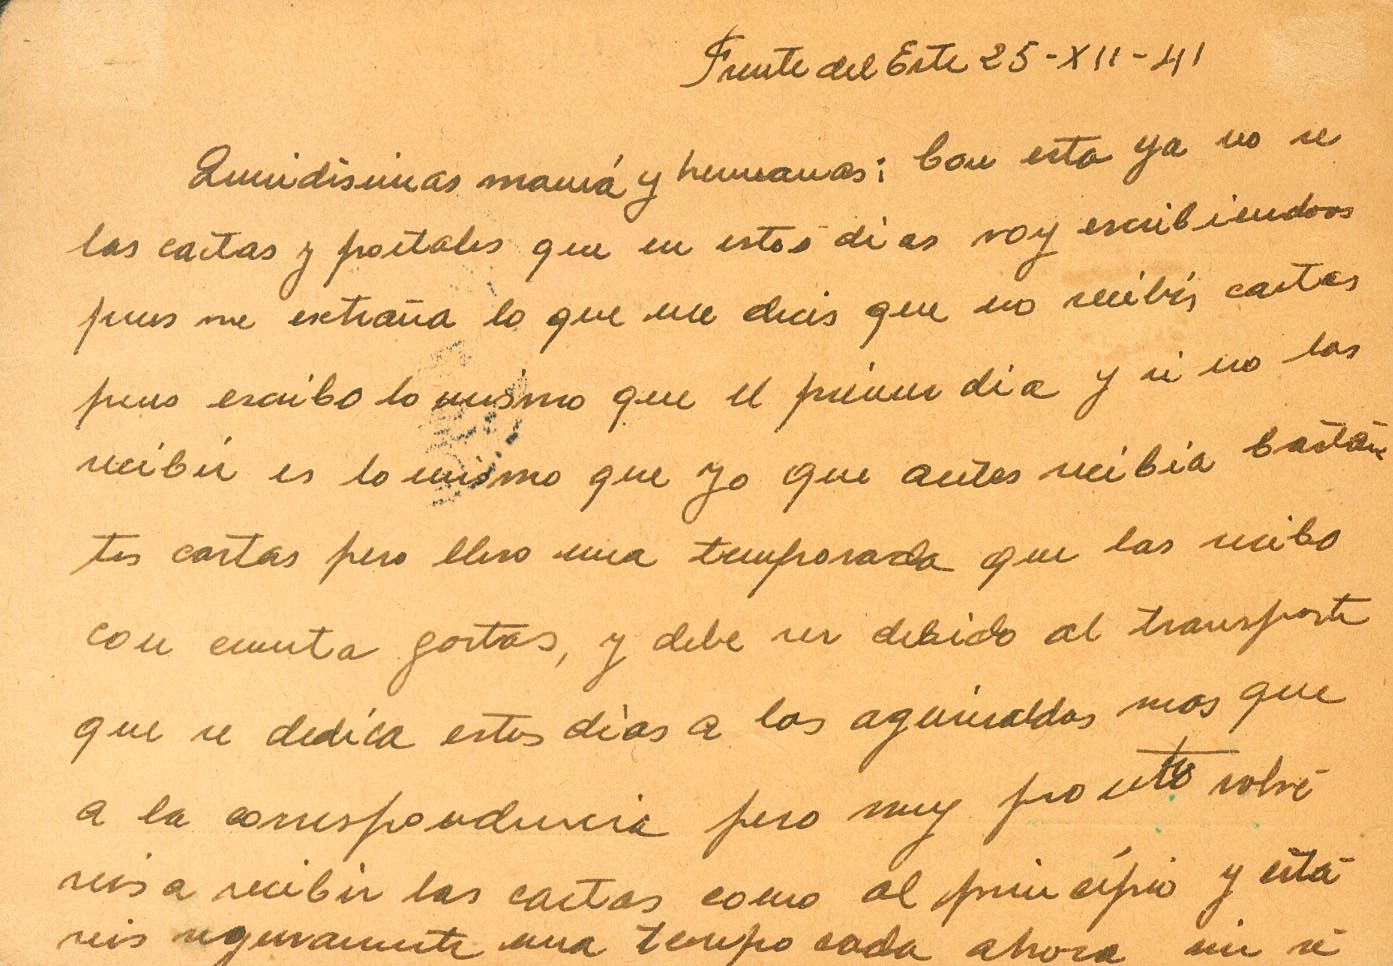 Frente del Este 25-XII-41
Queridisimas mamá y hermanas: Con esta ya no se
las cartas y postales que en estos dias voy escribiendoos
pues me extraña lo que me decis que no recibis cartas
pues escribo lo mismo que el primer dia y si no las
recibir es lo mismo que yo que antes recibia bastan
tes cartas pero llevo una temporada que las recibo
con cuenta gotas, y debe ser debido al transporte
que se dedica estos dias a los aguinaldos mas que
a la correspondencia pero muy pronto volve
reis a recibir las cartas como al principio y esta
reis seguramente una temporada ahora sin re